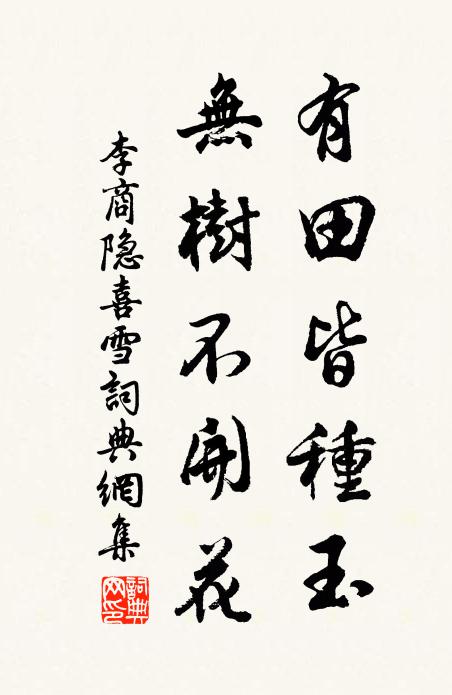 有田皆種玉
無樹不開花
李商隐喜雪詞典網集
詞典網印